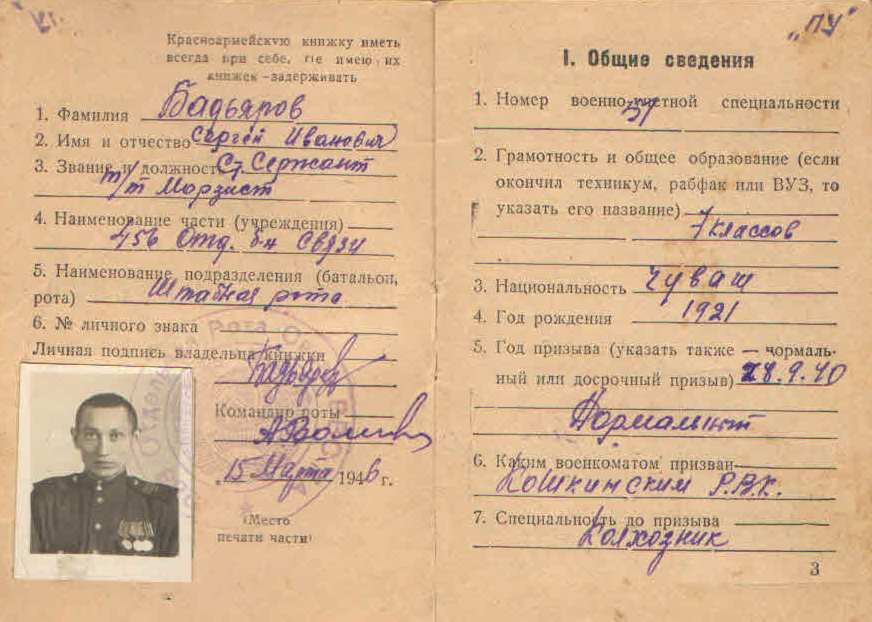 Красноармейскую книжку иметь
всегда при себе. Не имею их
книжек - задерживать
1. Фамилия Бадьяров
2. Имя и отчество Сергей Иванович
3. Звание и должность Ст. Сержант
т/т Морзист
4. Наименование части (учреждения)
456 Отд. б-н Связи
5. Наименование подразделения (батальон,
рота) Штабная рота
6. № личного знака
Личная подпись владельца книжки
Бадьяров
Командир роты
15 Марта 1946 г.
(Место
печати части)
"ПУ"
I. Общие сведения
1. Номер военно-учетной специальности
2. Грамотность и общее образование (если
окончил техникум, рабфак или ВУЗ, то
указать его название)
7 классов
3. Национальность Чуваш
4. Год рождения 1921
5. Год призыва (указать также — нормаль-
ный или досрочный призыв) 28.9.40
Нормальный
6. Каким военкоматом призван
Кошкинским Р.В.К.
7. Специальность до призыва
Колхозник
3